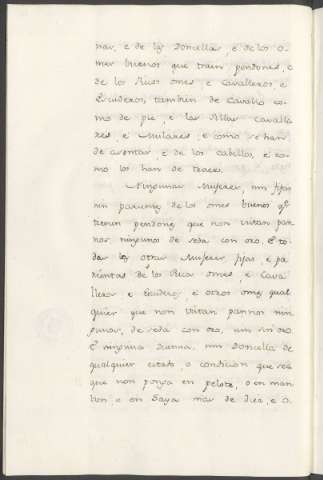 nar, e de las Doncellas, e de los o-
mes buenos que traen pendones, e
de los Ricos omes e Cavalleros, e
Escuderos, tambien de Cavallo co-
mo de pie, e las sillas cavalla
res, e Mulares, e como se han
de aventar, e de los cabellos, e co-
mo los han de traer.
Ningunas Mugeres, nin fijas
nin parientas de los omes buenos qe
trerin pendones que non vistan pan
nos ningunos de seda con oro. E to-
das las otras Mugeres fijas, e pa
rientas de los Ricos omes, e Cava
lleros e Escuderos, e otros omes qual
quier que non vistan pannos nin-
gunos, de seda con oro, nin sin oro.
E ninguna Duenna, nin Doncella de
qualquier estado, o condicion que sea
que non ponga en pelote, o en man
ton, o en Saya mas de diez, e o-